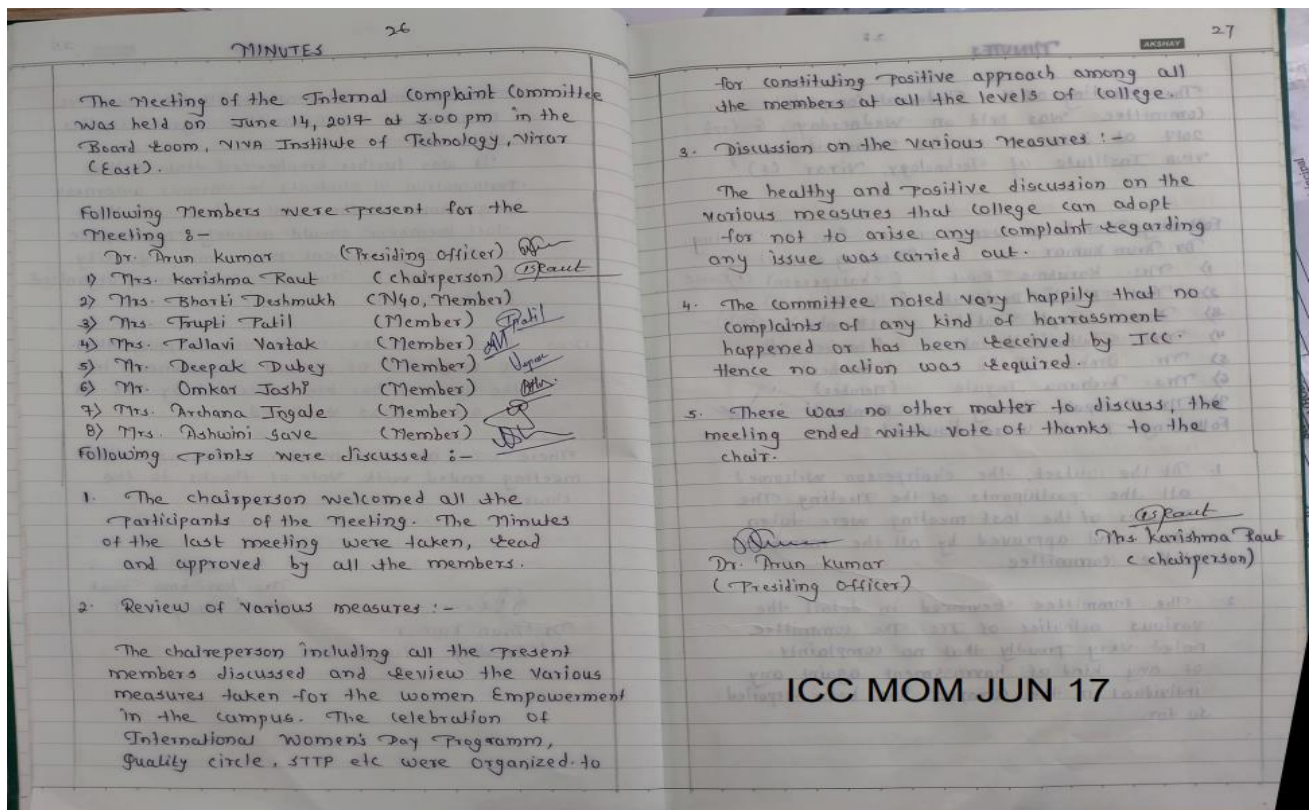 26
MINUTES
The Meeting of the Internal Complaint Committee
was held on June 14, 2017 at 3:00 pm in the
Board Room, VIVA Institute of Technology, Virar
(East).
Following Members were present for the
Meeting :-
Dr. Arun Kumar (Presiding Officer)
1) Mrs. Karishma Raut (chairperson) Raut
2) Mrs. Bharti Deshmukh (NGO, Member)
3) Mrs. Trupti Patil (Member) Patil
4) Mrs. Pallavi Vartak (Member)
5) Mr. Deepak Dubey (Member)
6) Mr. Omkar Joshi (Member)
7) Mrs. Archana Ingale (Member)
8) Mrs. Ashwini Save (Member)
Following points were discussed :-
1. The chairperson welcomed all the
Participants of the Meeting. The Minutes
of the last meeting were taken, read
and approved by all the members.
2. Review of various measures :-
The chaireperson including all the Present
members discussed and review the various
measures taken for the women Empowerment
in the campus. The celebration of
International Women's Day Programm,
Quality circle, STTP etc were organized to
27
AKSHAY
for constituting Positive approach among all
the members at all the levels of college.
3. Discussion on the various Measures :-
The healthy and Positive discussion on the
various measures that college can adopt
for not to arise any complaint regarding
any issue was carried out.
4. The committee noted vary happily that no
complaints of any kind of harrassment
happened or has been received by ICC.
Hence no action was required.
5. There was no other matter to discuss, the
meeting ended with vote of thanks to the
chair.
Raut
Dr. Arun Kumar Mrs Karishma Raut
(Presiding Officer) (chairperson)
ICC MOM JUN 17